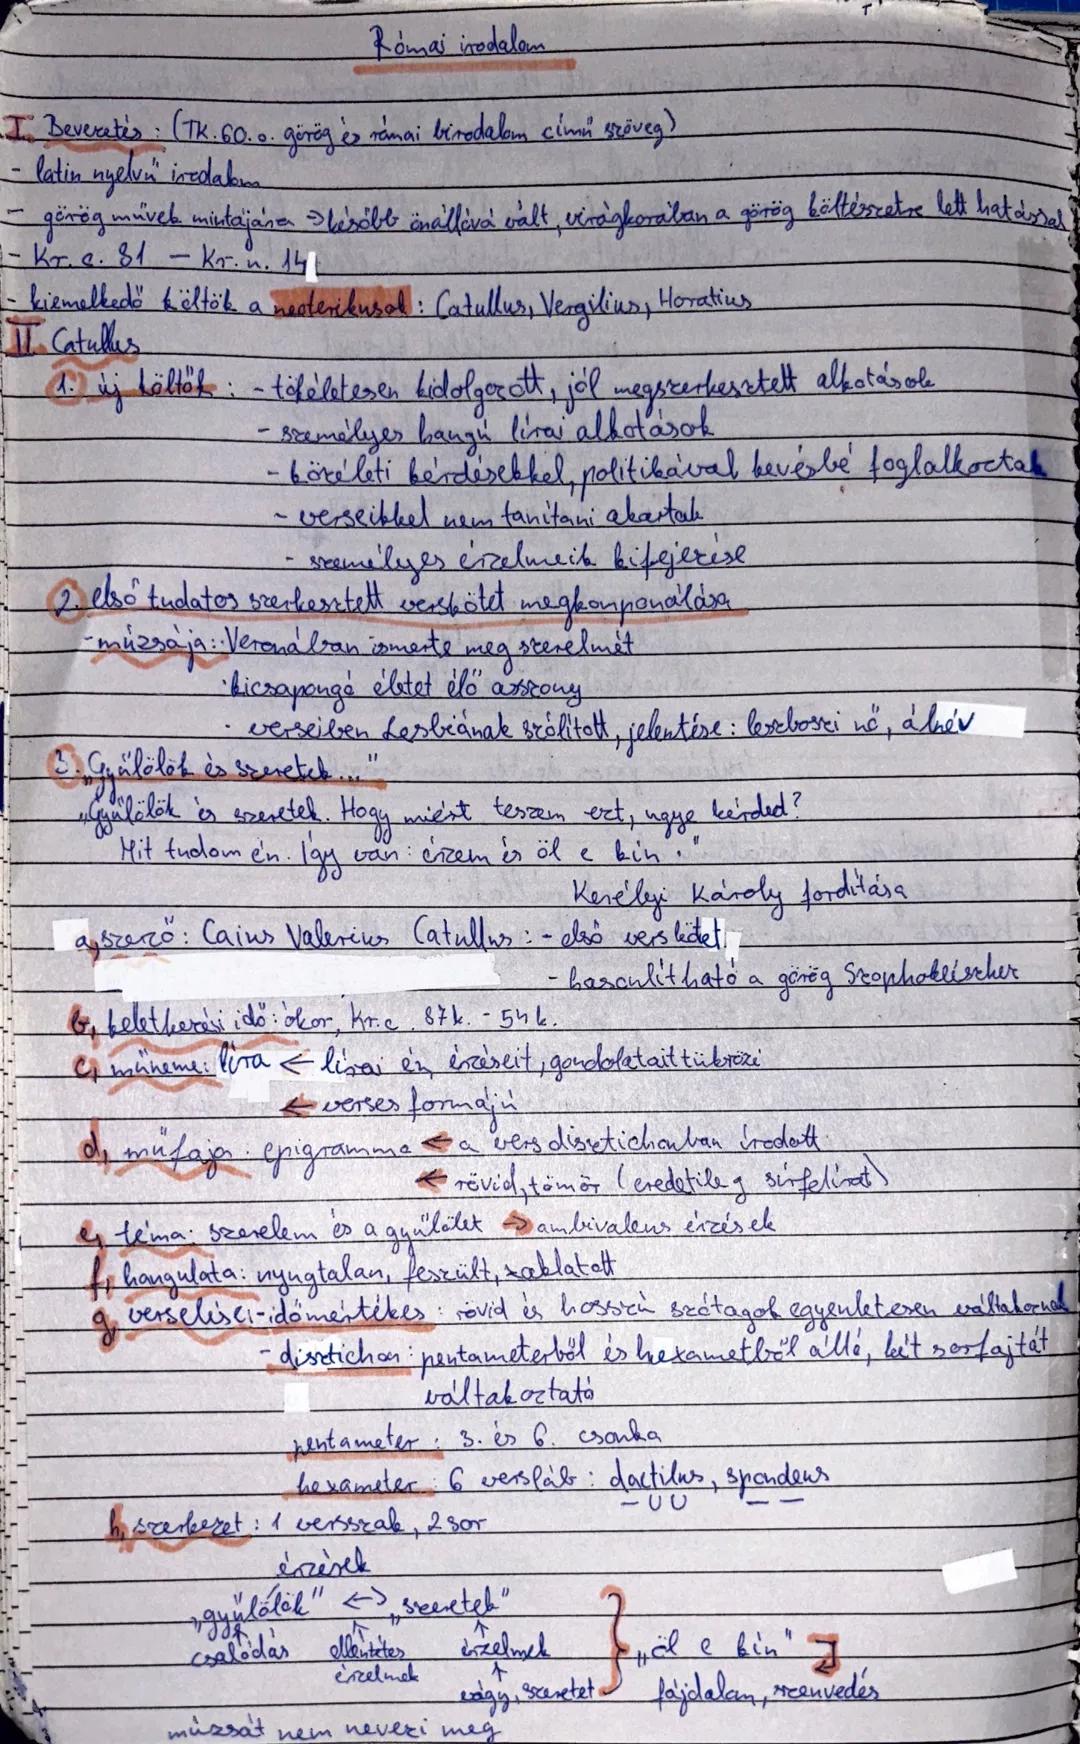 Római irodalom
I. Bevezetés: (TK. 60. o. görög és római birodalom című szöveg)
- latin nyelvű irodalom
- görög művek mintájára => később önállóvá vált, virágkorában a görög költészetre lett hatással
- Kr. e. 81 - Kr. u. 14
- kiemelkedő költők a neoterikusok: Catullus, Vergilius, Horatius
II. Catullus
1. új költők: - tökéletesen kidolgozott, jól megszerkesztett alkotások
- személyes hangú lírai alkotások
- közéleti kérdésekkel, politikával kevésbé foglalkoztak
- verseikkel nem tanítani akartak
- személyes érzelmeik kifejezése
2. első tudatos szerkesztett verskötet megkomponálása
- múzsája: · Veronában ismerte meg szerelmét
· kicsapongó életet élő asszony
· verseiben Lesbiának szólított, jelentése: leszboszi nő, álnév
3. „Gyűlölök és szeretek..."
„Gyűlölök és szeretek. Hogy miért teszem ezt, ugye kérded?
Mit tudom én. Így van: érzem és öl e kín."
Kerélyi Károly fordítása
a, szerző: Caius Valerius Catullus: - első verskötet
- hasonlítható a görög Szophoklészhez
b, keletkezési idő: ókor, Kr.e. 87k. - 54k.
c, műneme: líra <- lírai én érzéseit, gondolatait tükrözi
<- verses formájú
d, műfaja: epigramma <- a vers disztichonban íródott
<- rövid, tömör (eredetileg sírfelirat)
e, téma: szerelem és a gyűlölet -> ambivalens érzések
f, hangulata: nyugtalan, feszült, zaklatott
g, verselése:-időmértékes: rövid és hosszú szótagok egyenletesen váltakoznak
- disztichon: pentameterből és hexametből álló, két sorfajtát
váltakoztató
pentameter: 3. és 6. csonka
hexameter: 6 versláb: dactilus, spondeus
— U U — —
h, szerkezet: 1 versszak, 2 sor
érzések
„gyűlölök" <-> „szeretek"
↑ ↑ ↑
csalódás ellentétes érzelmek } „öl e kín"
érzelmek ↑
vágy, szeretet fájdalom, szenvedés
múzsát nem nevezi meg